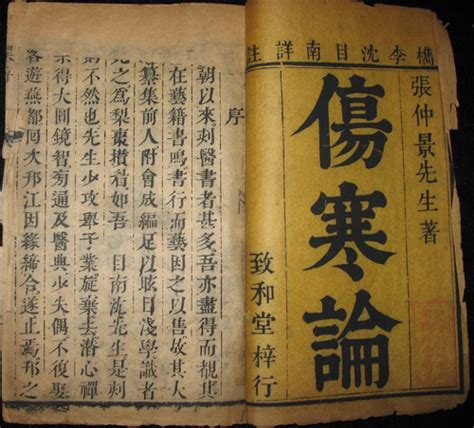 檇李沈目南詳註
張仲景先生著
傷寒論
致和堂梓行
序
朝以來刻醫書者甚多吾亦盡得而觀其
在藝籍書鳴書行而藝因之以售故其大
纂集前人附會成編足以眩目淺學識者
先之為梨棗攢着如吾 目南沈先生是刻
不然也先生少攻舉子業旋棄去潛心禪
宗得大圓鏡智菊通及醫典少失偶不復娶
客遊燕都回次邗江因緣締合遂止焉邗之